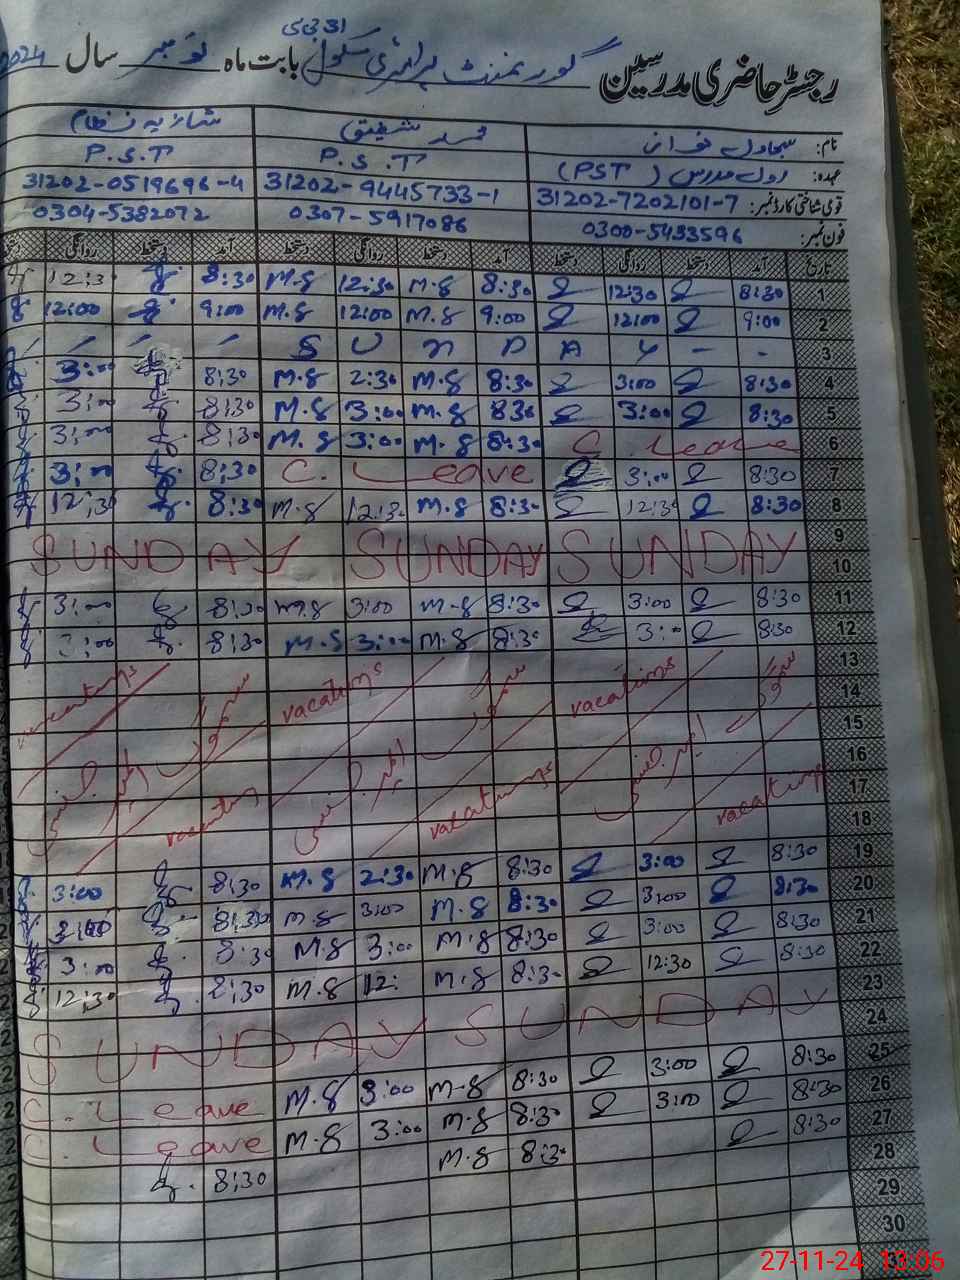 رجسٹر حاضری مدرسین گورنمنٹ پرائمری سکول 31 ڈی بی بابت ماہ نومبر سال 2024
نام: سجاول محمد شفیق شازیہ نظام
عہدہ: رول مدرس (PST) P.S.T P.S.T
قومی شناختی کارڈ نمبر: 31202-7202101-7 31202-9445733-1 31202-0519696-4
فون نمبر: 0300-5433596 0307-5917086 0304-5382072
تاریخ آمد دستخط روانگی دستخط آمد دستخط روانگی دستخط آمد دستخط روانگی
1 8:30 12:30 8:30 M.S 12:30 M.S 8:30 12:3
2 9:00 12:00 9:00 M.S 12:00 M.S 9:00 12:00
3 S U N D A Y
4 8:30 3:00 8:30 M.S 2:30 M.S 8:30 3:00
5 8:30 3:00 830 M.S 3:00 M.S 8:30 3:00
6 C. Leave 8:30 M.S 3:00 M.S 8:30 3:00
7 8:30 3:00 C. Leave 8:30 3:00
8 8:30 12:30 8:30 M.S 12:30 M.S 8:30 12:30
9
10 SUNDAY SUNDAY SUNDAY
11 8:30 3:00 8:30 M.S 3:00 M.S 8:30 3:00
12 8:30 3:00 8:30 M.S 3:00 M.S 8:30 3:00
13
14 vacations vacations vacations
15
16
17 vacations vacations vacations
18
19 8:30 3:00 8:30 M.S 2:30 M.S 8:30 3:00
20 8:30 3:00 8:30 M.S 3:00 M.S 8:30 3:00
21 8:30 3:00 8:30 M.S 3:00 M.S 8:30 3:00
22 8:30 12:30 8:30 M.S 12: M.S 8:30 12:30
23
24 SUNDAY SUNDAY
25 8:30 3:00 8:30 M.S 3:00 M.S C. Leave
26 8:30 3:00 8:30 M.S 3:00 M.S C. Leave
27 8:30 8:30 M.S 8:30
28
29
30
27-11-24 13:06